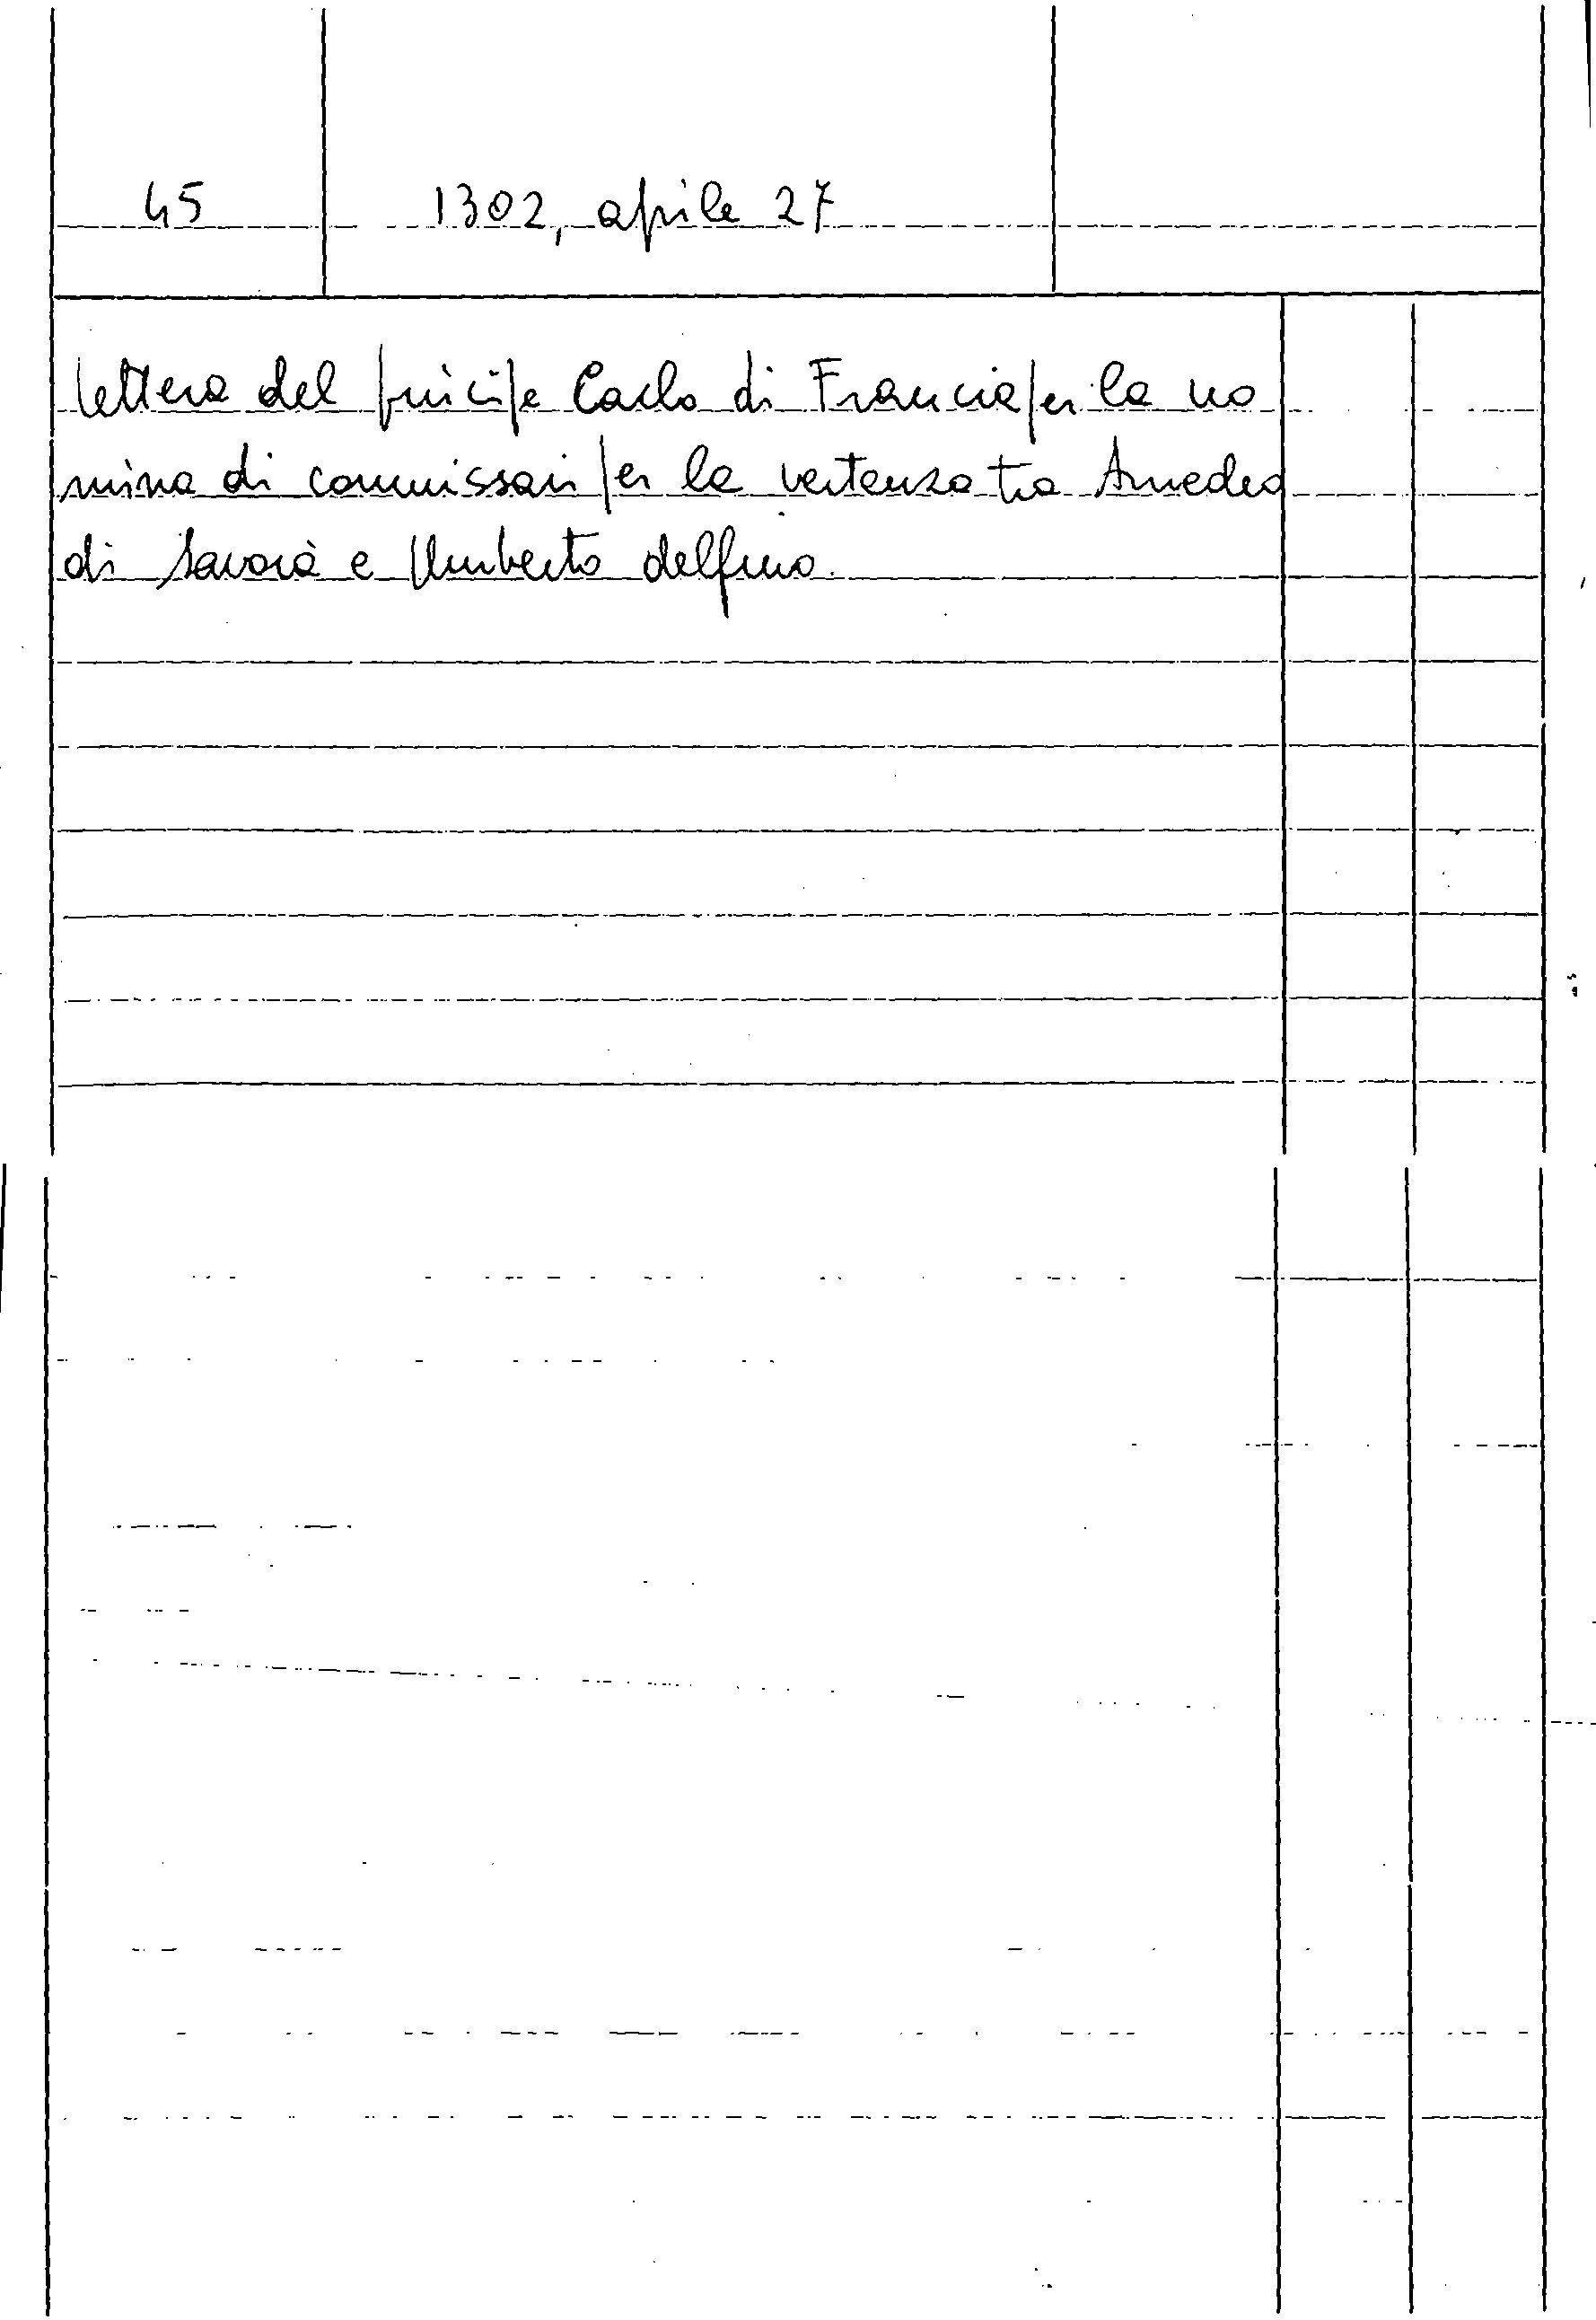 45 1302, aprile 27
Lettera del principe Carlo di Francia per la no
mina di commissari per la vertenza tra Amedeo
di Savoia e Umberto delfino.